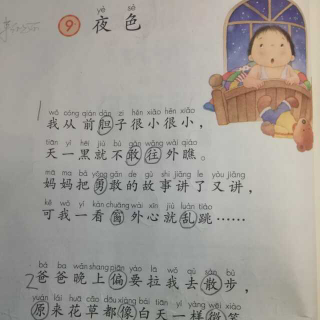 yè sè
9 夜色
1
wǒ cóng qián dǎn zi hěn xiǎo hěn xiǎo
我从前胆子很小很小，
tiān yì hēi jiù bù gǎn wǎng wài qiáo
天一黑就不敢往外瞧。
mā ma bǎ yǒng gǎn de gù shi jiǎng le yòu jiǎng
妈妈把勇敢的故事讲了又讲，
kě wǒ yí kàn chuāng wài xīn jiù luàn tiào
可我一看窗外心就乱跳……
bà ba wǎn shang piān yào lā wǒ qù sàn bù
2 爸爸晚上偏要拉我去散步，
yuán lái huā cǎo dōu xiàng bái tiān yí yàng wēi xiào
原来花草都像白天一样微笑